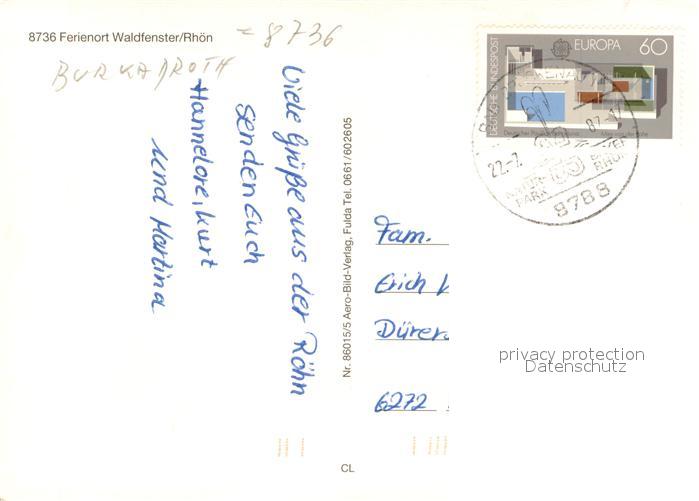 8736 Ferienort Waldfenster/Rhön
= 8736
BURKADROTH
Viele Grüße aus der Röhn
senden Euch
Hannelore, Kurt
und Martina
Nr. 86015/5 Aero-Bild-Verlag, Fulda Tel. 0661/602605
DEUTSCHE BUNDESPOST
EUROPA 60
22.-7. 87.-17
NATUR-
PARK
BAYER.
RHÖN
8788
Fam.
Erich
Dürer
6272
privacy protection
Datenschutz
CL